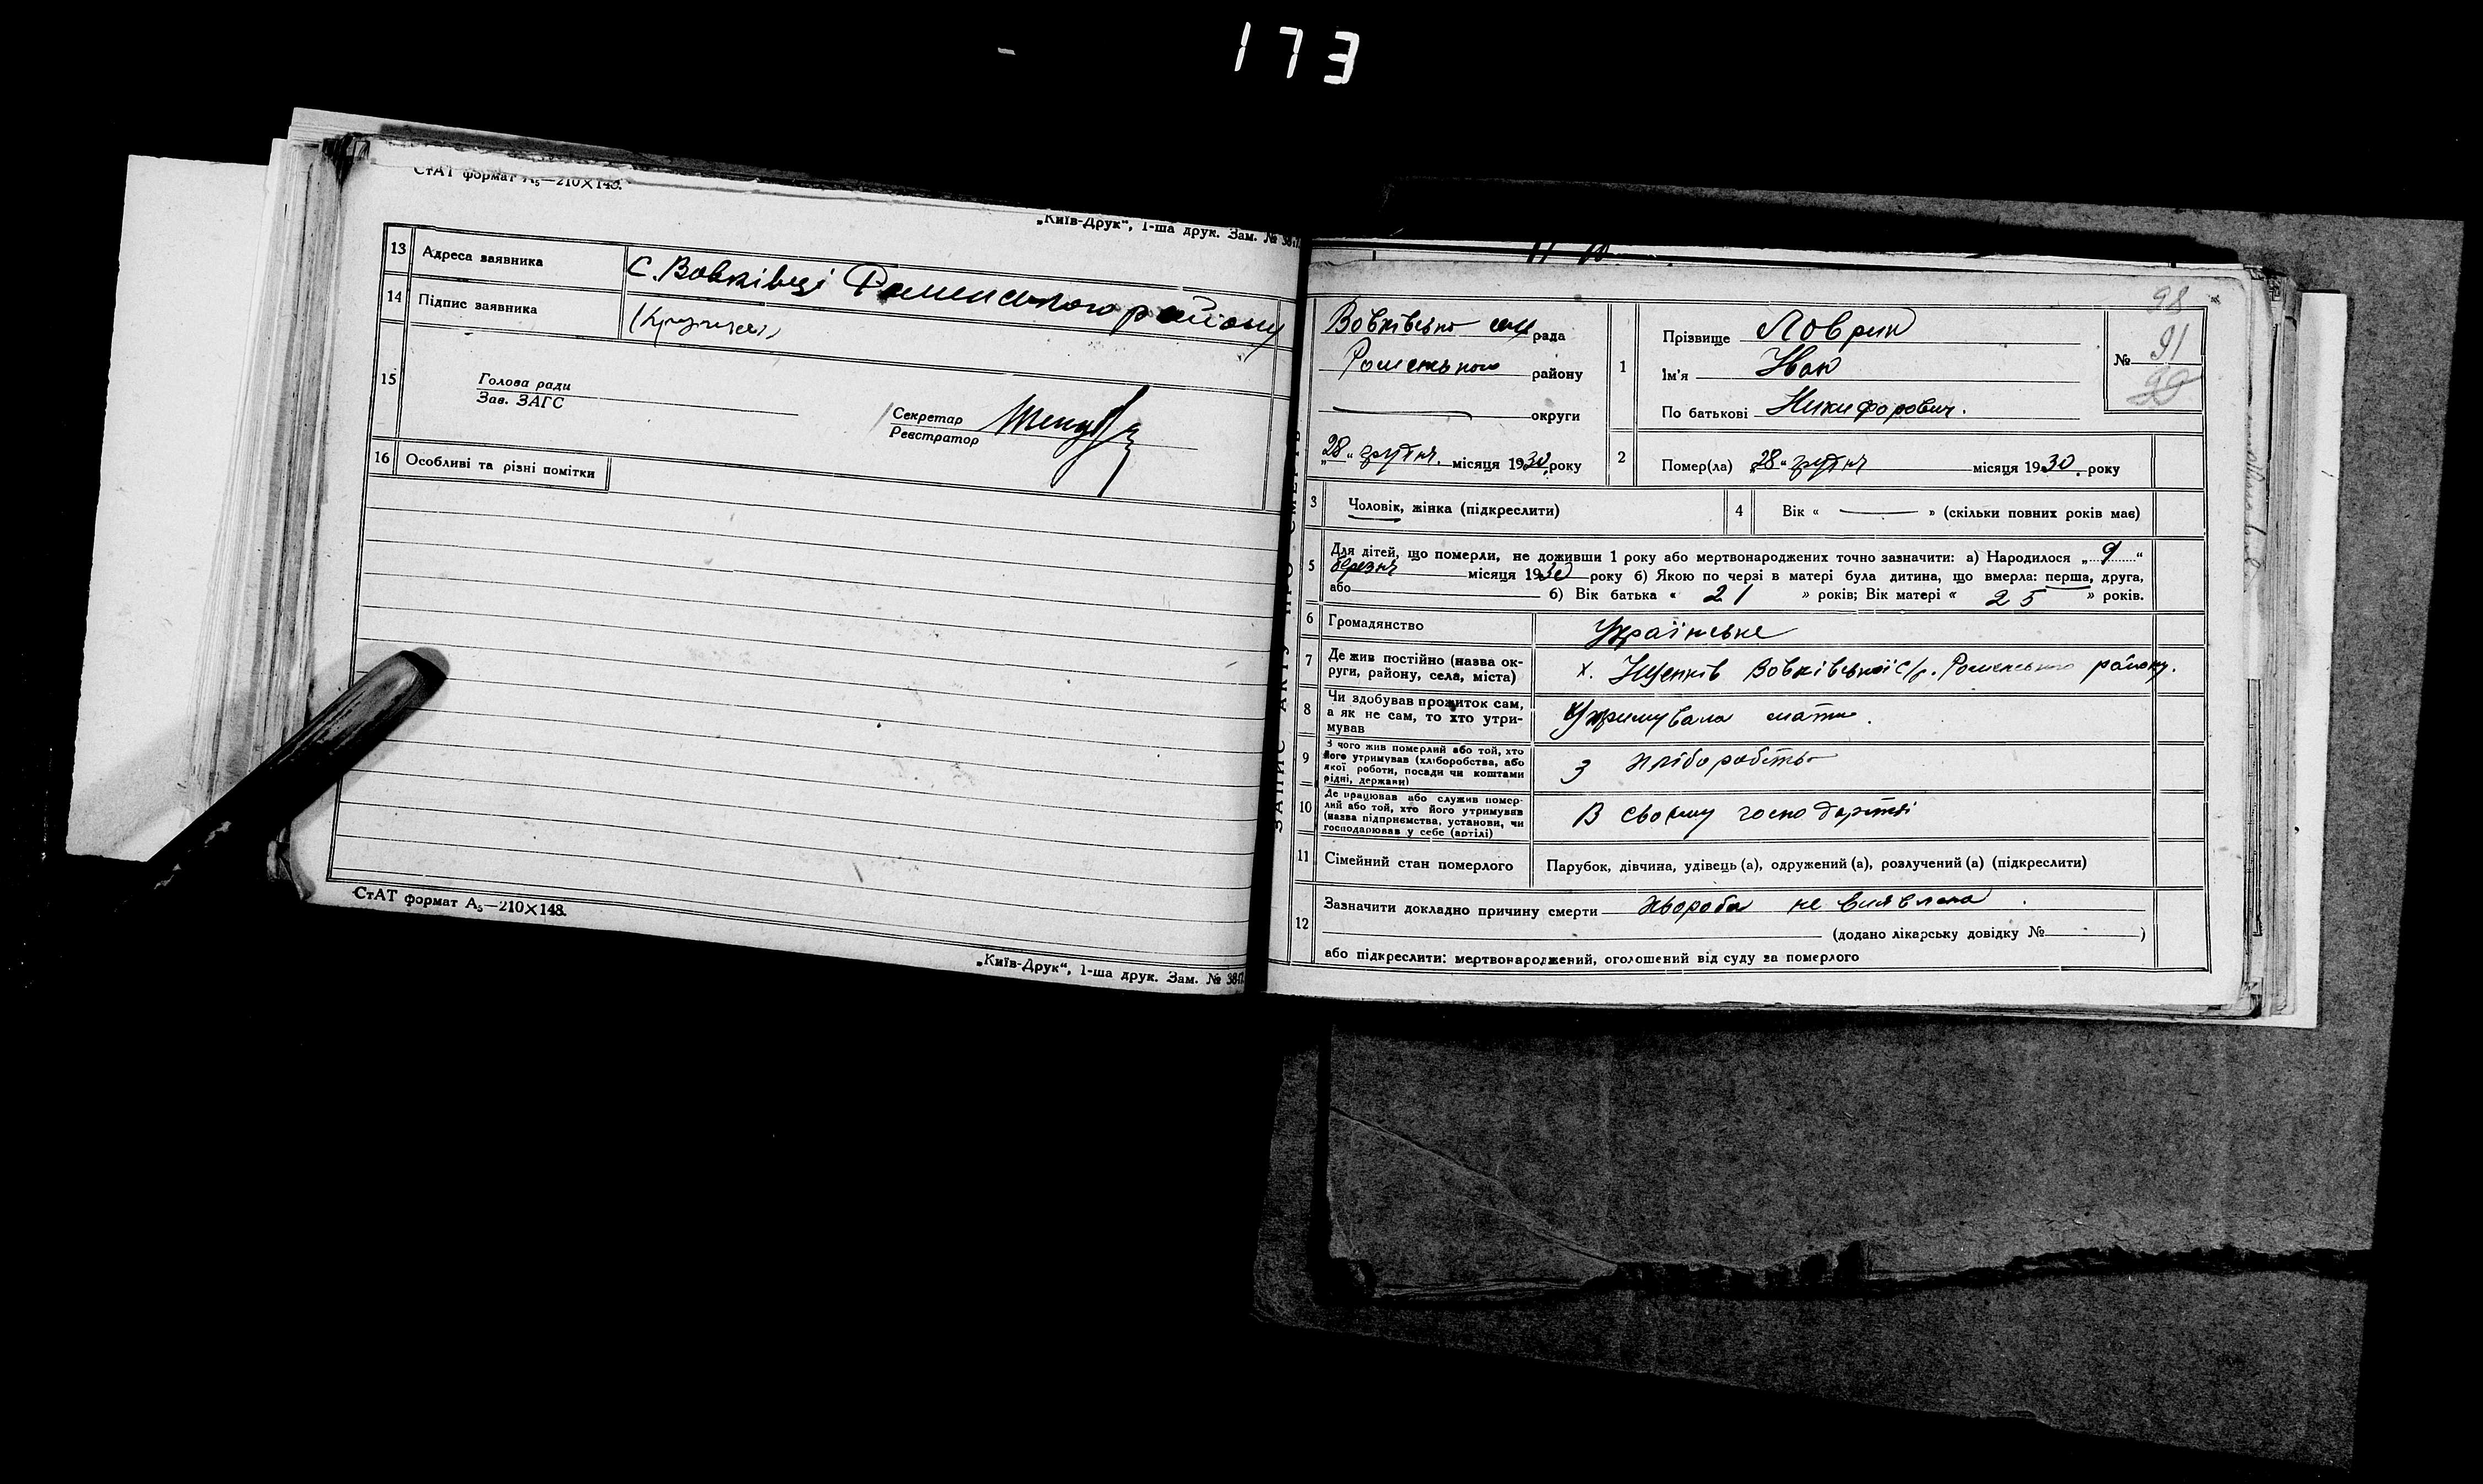 173
СтАТ формат А₅—210×148.
„Київ-Друк“, 1-ша друк. Зам. №
13 Адреса заявника С. Вовківці Роменського району
14 Підпис заявника
15 Голова ради
Зав. ЗАГС
Секретар
Реєстратор
16 Особливі та різні помітки
СтАТ формат А₅—210×148.
„Київ-Друк“, 1-ша друк. Зам. №
ЗАПИС АКТУ ПРО СМЕРТЬ
98
Вовківсько рада
Роменського району
округи
„28“ грудня місяця 1930 року
1 Прізвище Ловрик
Ім'я Іван
По батькові Никифорович.
№ 91
99
2 Помер(ла) „28“ грудня місяця 1930. року
3 Чоловік, жінка (підкреслити)
4 Вік « — » (скільки повних років має)
5 Для дітей, що померли, не доживши 1 року або мертвонароджених точно зазначити: а) Народилося „9“
березня місяця 1930 року б) Якою по черзі в матері була дитина, що вмерла: перша, друга,
або б) Вік батька « 21 » років; Вік матері « 25 » років.
6 Громадянство Українське
7 Де жив постійно (назва ок-
руги, району, села, міста) х. Іщенків Вовківської с/р. Роменського району.
8 Чи здобував прожиток сам,
а як не сам, то хто утри-
мував Утримувала мати.
9 З чого жив померлий або той, хто
його утримував (хліборобства, або
якої роботи, посади чи коштами
рідні, держави) З хліборобства
10 Де працював або служив помер-
лий або той, хто його утримував
(назва підприємства, установи, чи
господарював у себе (артілі) В своєму господарстві
11 Сімейний стан померлого Парубок, дівчина, удівець (а), одружений (а), розлучений (а) (підкреслити)
12 Зазначити докладно причину смерти Хвороба не виявлена.
(додано лікарську довідку № )
або підкреслити: мертвонароджений, оголошений від суду за померлого